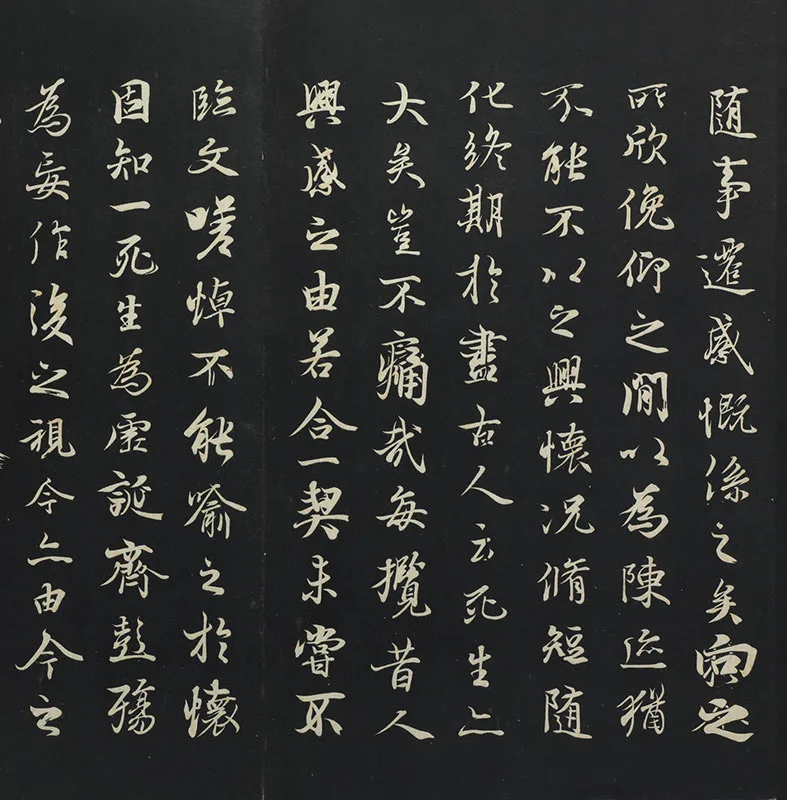 随事遷感慨係之矣向之
所欣俛仰之間以為陳迹猶
不能不以之興懷況脩短随
化終期於盡古人云死生亦
大矣豈不痛哉每攬昔人
興感之由若合一契未嘗不
臨文嗟悼不能喻之於懷
固知一死生為虛誕齊彭殤
為妄作後之視今亦由今之